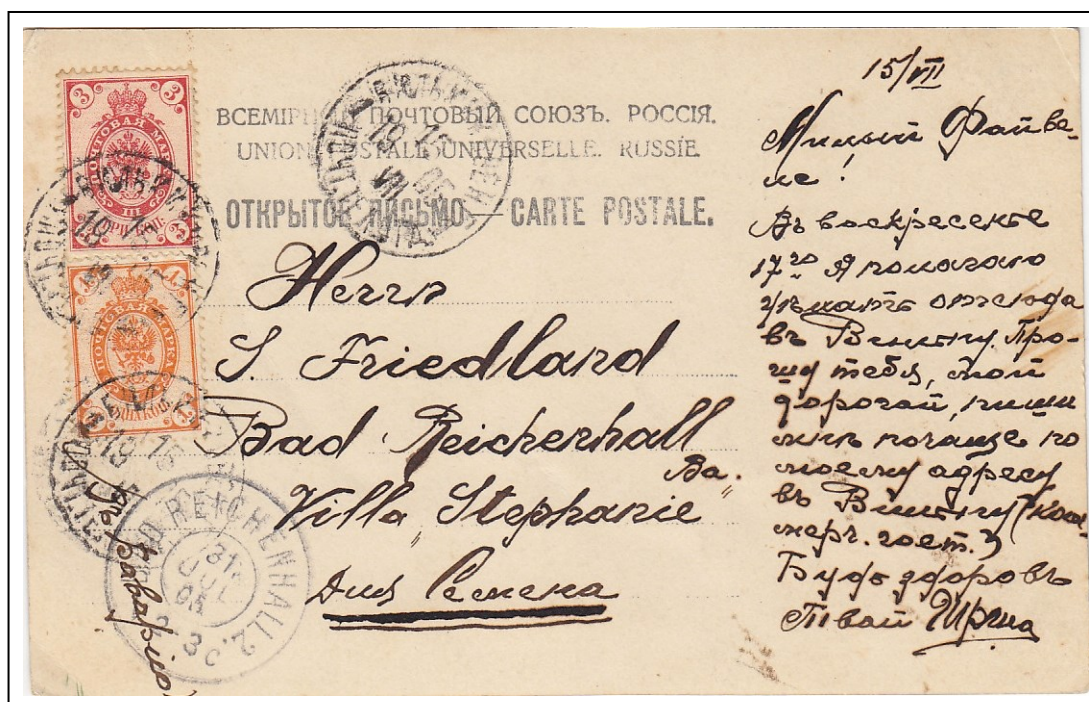 ВСЕМІРНЫЙ ПОЧТОВЫЙ СОЮЗЪ. РОССІЯ.
UNION POSTALE UNIVERSELLE. RUSSIE
ОТКРЫТОЕ ПИСЬМО — CARTE POSTALE.
3
ПОЧТОВАЯ МАРКА
ПОЧТОВАЯ МАРКА
Herrn
S. Friedland
Bad Reichenhall
Ba.
Villa Stephanie
Для Семена
въ Баварію
BAD REICHENHALL 2.
31
JUL
15/VII
Милый Файве-
ле!
Въ воскресенье
17го Я полагаю
уѣхать отсюда
въ Вильну. Про-
шу тебя, мой
дорогой, пиши
мнѣ почаще по
моему адресу
въ Вильну (ком-
мерч. гост.)
Будь здоровъ
Твой